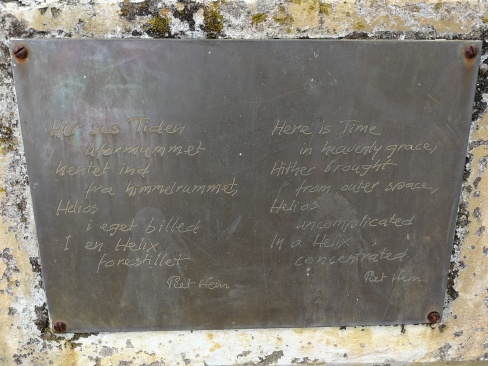 Her ses Tiden
uformummet
hentet ind
fra himmelrummet,
Helios
i eget billed
I en Helix
forestillet
Piet Hein
Here is Time
in heavenly grace,
Hither brought
from outer space,
Helios
uncomplicated
In a Helix
concentrated
Piet Hein